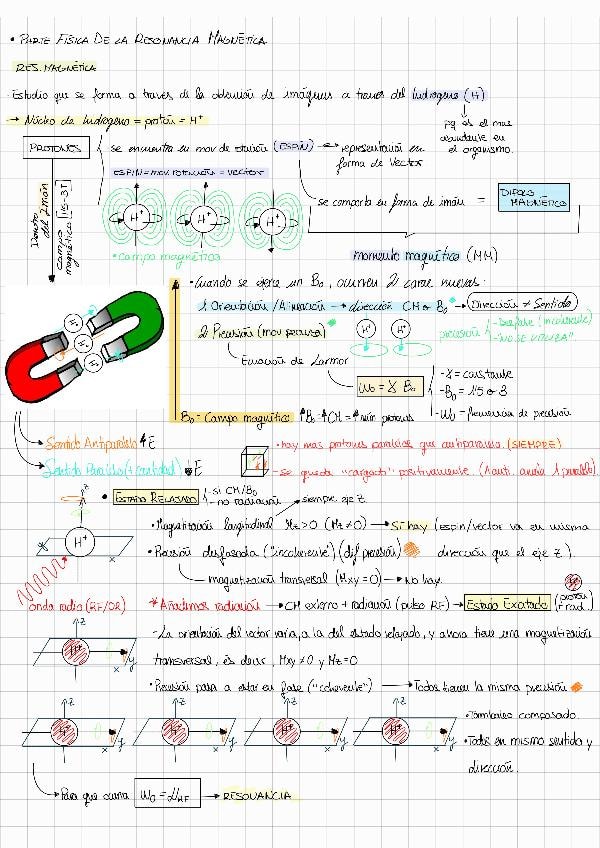 • PARTE FÍSICA DE LA RESONANCIA MAGNÉTICA
RES. MAGNÉTICA
Estudio que se forma a través de la obtención de imágenes a través del hidrógeno (H)
→ Núcleo de hidrógeno = protón = H+
pq es el mas
abundante en
el organismo.
PROTONES
se encuentra en mov. de rotación (ESPÍN) → representación en
forma de vector
ESPÍN = mov. rotación = vector
Dentro
del imán
campo
magnético
1'5-3T
H+ H+ H+
• campo magnético
se comporta en forma de imán =
DIPOLO
MAGNÉTICO
momento magnético (MM)
• Cuando se ejerce un B0, ocurren 2 cosas nuevas:
1) Orientación / Alineación → dirección CM o B0 → Dirección ≠ Sentido
2) Precesión (mov. peonza)
H+ H+
precesión
- Desfase (incoherente)
- "NO SE UTILIZA".
Ecuación de Larmor
W0 = γ B0
- γ = constante
- B0 = 1'5 o 3
- W0 = frecuencia de precesión
B0 = Campo magnético ↑B0 = ↑CM = ↑núm protones
→ Sentido Antiparalelo ↑E
→ Sentido Paralelo (+ cantidad) ↓E
• hay mas protones paralelos que antiparalelos. (SIEMPRE)
- se queda "cargado" positivamente. (Aanti. anula 1 paralelo).
• ESTADO RELAJADO
- si CM/B0
- no radiación
siempre eje Z.
z
H+
x
• Magnetización longitudinal Mz>0 (Mz≠0) → Si hay (espín/vector va en misma
dirección que el eje Z).
• Precesión desfasada ("incoherente") (dif precesión)
magnetización transversal (Mxy=0) → No hay.
onda radio (RF/OR)
* Añadimos radiación → CM externo + radiación (pulso RF) → Estado Excitado
(protón
+ rad.)
- La orientación del vector varía, a la del estado relajado, y ahora tiene una magnetización
transversal, es decir, Mxy≠0 y Mz=0
z
H+
y
x
• Precesión pasa a estar en fase ("coherente") → Todos tienen la misma precesión
z z z z
H+ H+ H+ H+
y y y y
x x x x
• Tambaleo compasado.
• Todos en mismo sentido y
dirección.
→ Para que ocurra W0 = WRF → RESONANCIA